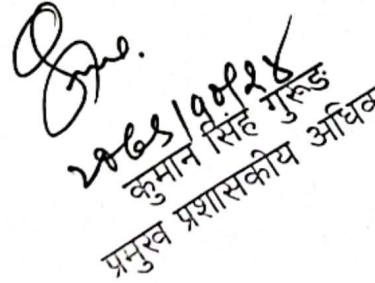 २०७९/१०/२४
कुमान सिंह गुरूङ
प्रमुख प्रशासकीय अधिक